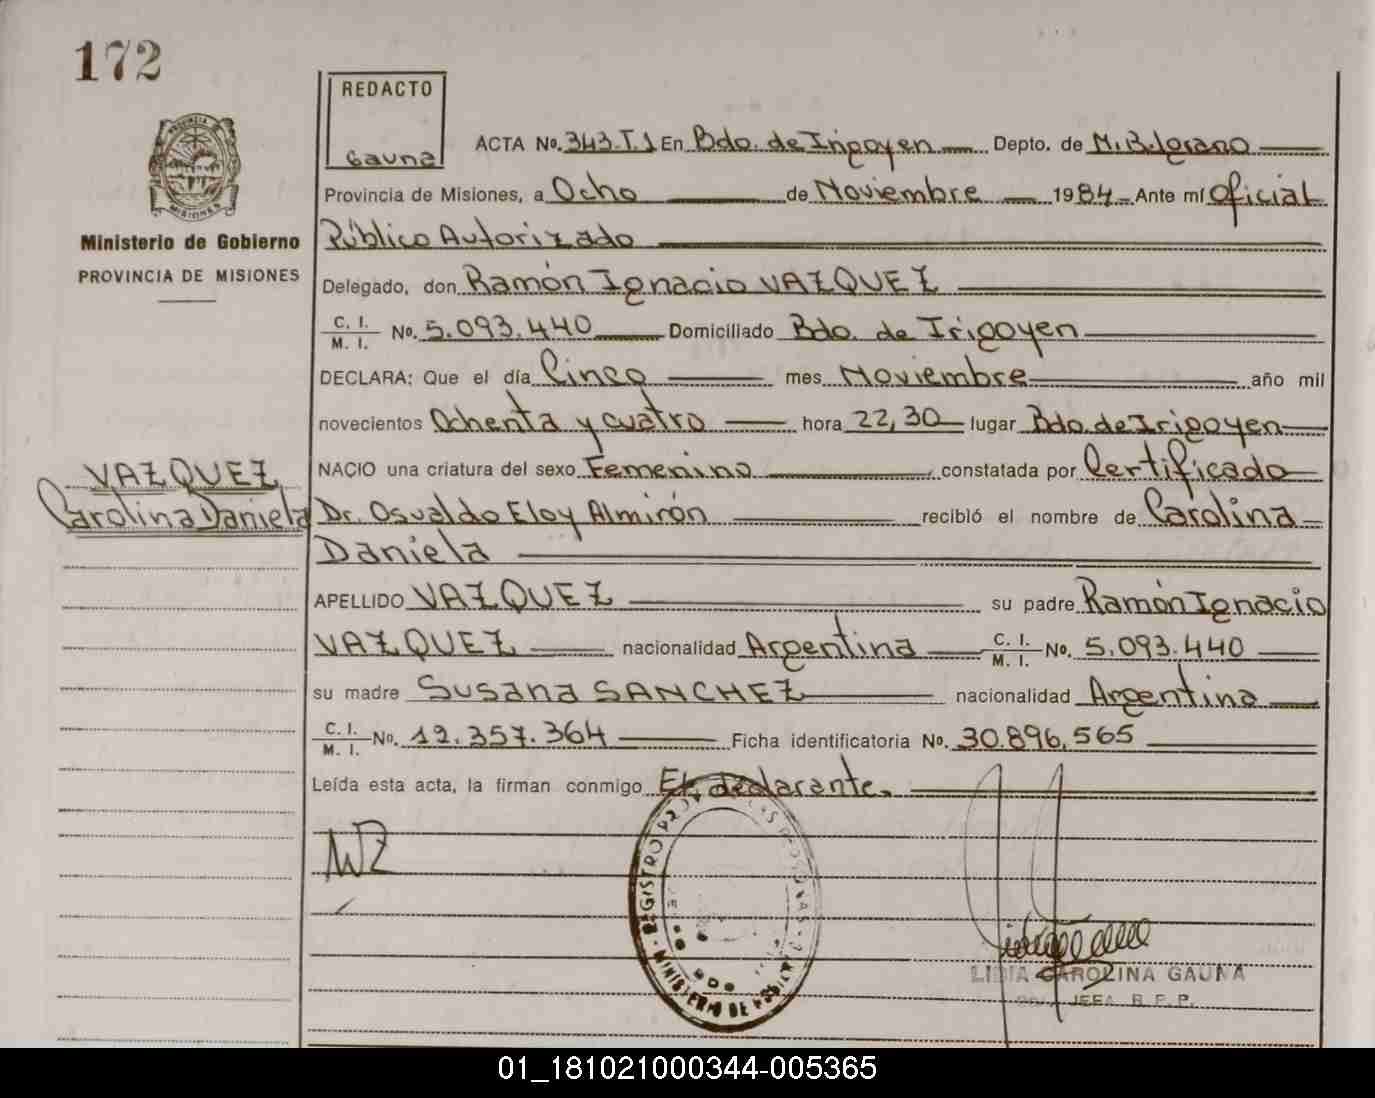 172
REDACTO
Gauna
PROVINCIA DE MISIONES
Ministerio de Gobierno
PROVINCIA DE MISIONES
ACTA No. 343.T.1 En Bdo. de Irigoyen Depto. de M. Belgrano
Provincia de Misiones, a Ocho de Noviembre 1984 Ante mí Oficial
Público Autorizado
Delegado, don Ramón Ignacio VAZQUEZ
C. I. / M. I. No. 5.093.440 Domiciliado Bdo. de Irigoyen
DECLARA: Que el día Cinco mes Noviembre año mil
novecientos Ochenta y cuatro hora 22,30 lugar Bdo. de Irigoyen
NACIO una criatura del sexo Femenino constatada por Certificado
VAZQUEZ
Carolina Daniela
Dr. Osvaldo Eloy Almirón recibló el nombre de Carolina
Daniela
APELLIDO VAZQUEZ su padre Ramón Ignacio
VAZQUEZ nacionalidad Argentina C. I. / M. I. No. 5.093.440
su madre Susana SANCHEZ nacionalidad Argentina
C. I. / M. I. No. 12.357.364 Ficha identificatoria No. 30.896.565
Leída esta acta, la firman conmigo El declarante.
REGISTRO PERSONAS MINISTERIO DE
LIDIA CAROLINA GAUNA
JEFA R.P.P.
01_181021000344-005365